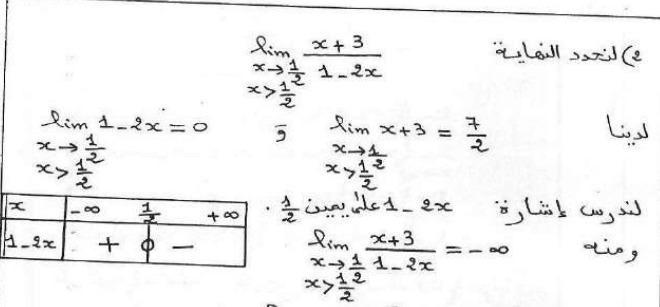 2) لنحدد النهاية lim x→1/2 x>1/2 (x+3)/(1-2x)
لدينا lim x→1/2 x>1/2 x+3 = 7/2 و lim x→1/2 x>1/2 1-2x = 0
لندرس إشارة 1-2x على يمين 1/2 .
x | -∞ 1/2 +∞
1-2x | + 0 -
ومنه lim x→1/2 x>1/2 (x+3)/(1-2x) = -∞